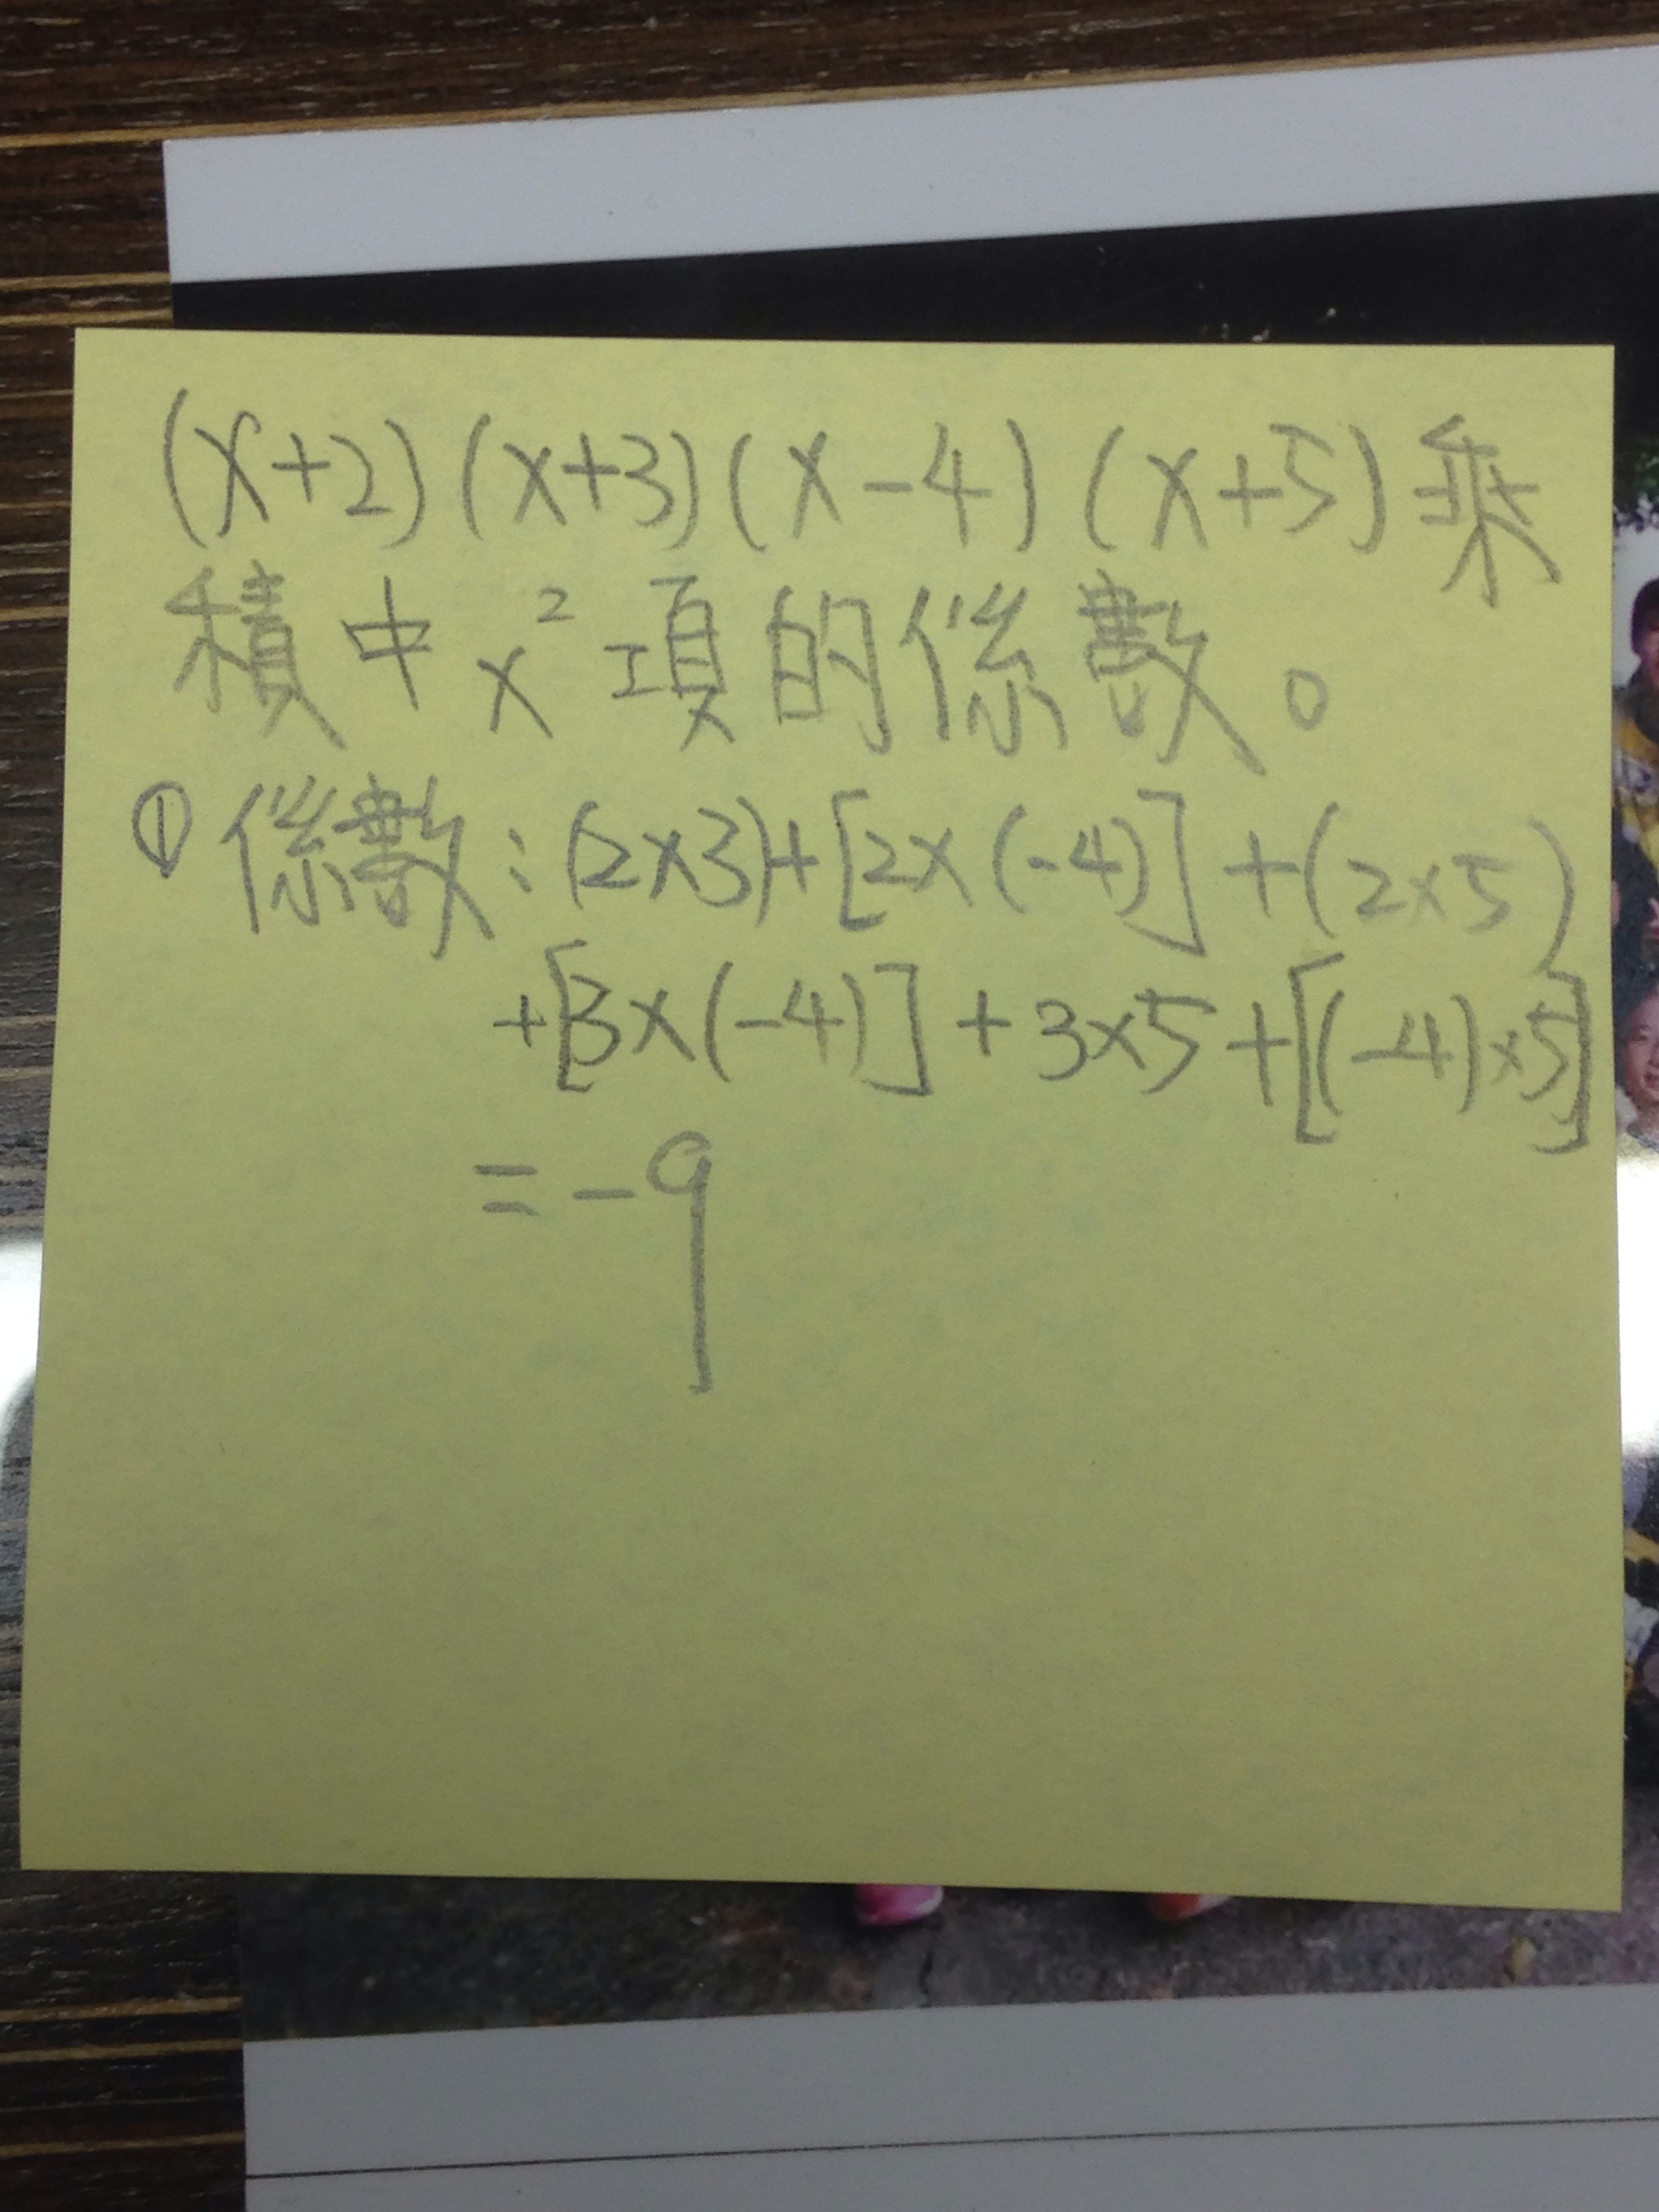 (x+2)(x+3)(x-4)(x+5)乘
積中x²項的係數。
①係數:(2×3)+[2×(-4)]+(2×5)
+[3×(-4)]+3×5+[(-4)×5]
=-9